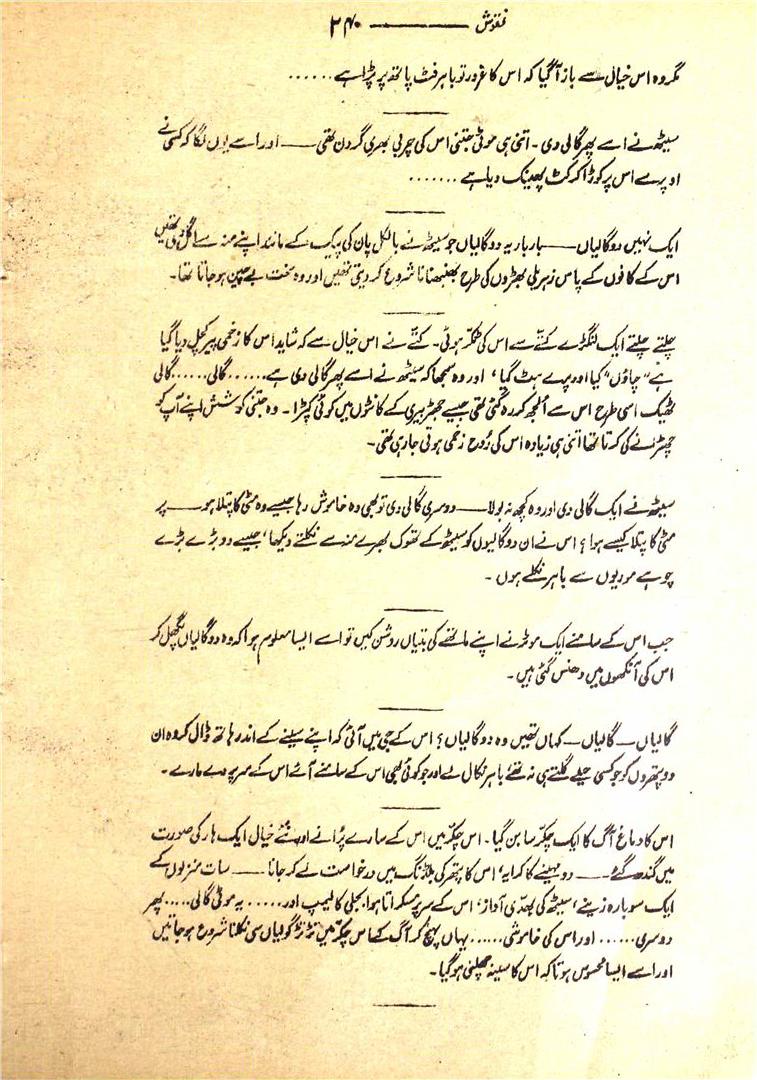 نقوش ——— ۲۴۰
مگر وہ اس خیال سے باز آ گیا کہ اس کا غرور تو باہر فٹ پاتھ پر پڑا ہے ......
سیٹھ نے اسے پھر گالی دی۔ اتنی ہی موٹی جتنی اس کی چربی بھری گردن تھی —— اور اسے یوں لگا کہ کسی نے
اوپر سے اس پر کوڑا کرکٹ پھینک دیا ہے .......
ایک نہیں دو گالیاں —— بار بار یہ دو گالیاں جو سیٹھ نے بالکل پان کی پیک کے مانند اپنے منہ سے اگل دی تھیں
اس کے کانوں کے پاس زہریلی بھڑوں کی طرح بھنبھنانا شروع کر دیتی تھیں اور وہ سخت بے چین ہو جاتا تھا۔
چلتے چلتے ایک لنگڑے کتے سے اس کی ٹکر ہوئی۔ کتے نے اس خیال سے کہ شاید اس کا زخمی پیر کچل دیا گیا
ہے ”چاؤں“ کیا اور پرے ہٹ گیا، اور وہ سمجھا کہ سیٹھ نے اسے پھر گالی دی ہے ...... گالی ...... گالی
ٹھیک اسی طرح اس سے الجھ کر رہ گئی تھی جیسے جھڑ بیری کے کانٹوں میں کوئی کپڑا۔ وہ جتنی کوشش اپنے آپ کو
چھڑانے کی کرتا تھا اتنی ہی زیادہ اس کی رُوح زخمی ہوتی جا رہی تھی۔
سیٹھ نے ایک گالی دی اور وہ کچھ نہ بولا —— دوسری گالی دی تو بھی وہ خاموش رہا جیسے وہ مٹی کا پتلا ہو —— پر
مٹی کا پتلا کیسے ہوا؟ اس نے ان دو گالیوں کو سیٹھ کے تھوک بھرے منہ سے نکلتے دیکھا، جیسے دو بڑے بڑے
چوہے موریوں سے باہر نکلے ہوں۔
جب اس کے سامنے ایک موٹر نے اپنے ماتھے کی بتیاں روشن کیں تو اسے ایسا معلوم ہوا کہ وہ دو گالیاں پگھل کر
اس کی آنکھوں میں دھنس گئی ہیں۔
گالیاں — گالیاں — کہاں تھیں وہ دو گالیاں؟ اس کے جی میں آئی کہ اپنے سینے کے اندر ہاتھ ڈال کر وہ ان
دو پتھروں کو جو کسی حیلے گلتے ہی نہ تھے باہر نکال لے اور جو کوئی بھی اس کے سامنے آئے اس کے سر پر دے مارے۔
اس کا دماغ آگ کا ایک چکر سا بن گیا۔ اس چکر میں اس کے سارے پرانے اور نئے خیال ایک ہار کی صورت
میں گندھ گئے —— دو مہینے کا کرایہ، اس کا پتھر کی بلڈنگ میں درخواست لے کر جانا —— سات منزلوں کے
ایک سو بارہ زینے، سیٹھ کی بھدّی آواز، اس کے سر پر مسکراتا ہوا بجلی کا لیمپ اور ...... یہ موٹی گالی ..... پھر
دوسری ...... اور اس کی خاموشی ...... یہاں پہنچ کر آگ کے اس چکر میں تڑ تڑ گولیاں سی نکلنا شروع ہو جاتیں
اور اسے ایسا محسوس ہوتا کہ اس کا سینہ چھلنی ہو گیا۔